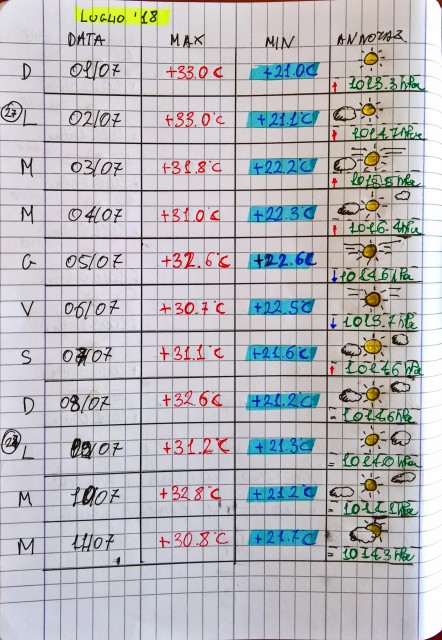 LUGLIO '18
DATA MAX MIN ANNOTAZ.
D 01/07 +33.0°C +21.0°C ↑ 1013.3 hPa
27 L 02/07 +33.0°C +21.1°C ↑ 1014.7 hPa
M 03/07 +31.8°C +22.2°C ↑ hPa
M 04/07 +31.0°C +22.3°C ↑ 1016.4 hPa
G 05/07 +32.6°C +22.6°C ↓ 1014.6 hPa
V 06/07 +30.7°C +22.5°C ↓ 1013.7 hPa
S 07/07 +31.1°C +21.6°C ↑ 1014.6 hPa
D 08/07 +32.6°C +21.2°C = 1014.6 hPa
28 L 09/07 +31.2°C +21.3°C = 1014.0 hPa
M 10/07 +32.8°C +21.2°C = hPa
M 11/07 +30.8°C +21.7°C = 1014.3 hPa